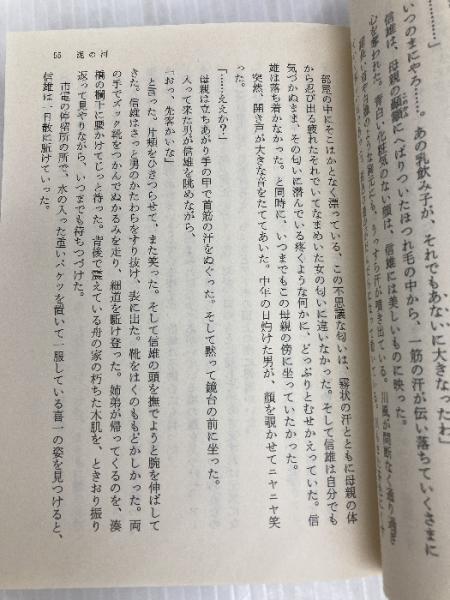 ………」
いつのまにやろ……。あの乳飲み子が、それでもあないに大きなったわ」
信雄は、母親の顳顬にへばりついたほつれ毛の中から、一筋の汗が伝い落ちていくさまに
心を奪われた。青白い化粧気のない顔は、信雄には美しいものに映った。
うっすら汗が噴き出ている。川風が間断なく通り過ぎ
部屋の中にそこはかとなく漂っている、この不思議な匂いは、霧状の汗とともに母親の体
から忍び出る疲れたそれでいてなまめいた女の匂いに違いなかった。そして信雄は自分でも
気づかぬまま、その匂いに潜んでいる疼くような何かに、どっぷりとむせかえっていた。信
雄は落ち着かなかった。と同時に、いつまでもこの母親の傍に坐っていたかった。
突然、開き戸が大きな音をたててあいた。中年の日灼けた男が、顔を覗かせてニヤニヤ笑
った。
「……ええか？」
母親は立ちあがり手の甲で首筋の汗をぬぐった。そして黙って鏡台の前に坐った。
入って来た男が信雄を眺めながら、
「おっ、先客かいな」
と言った。片頬をひきつらせて、また笑った。そして信雄の頭を撫でようと腕を伸ばして
きた。信雄はさっと男のかたわらをすり抜け、表に出た。靴をはくのももどかしかった。両
の手でズック靴をつかんでぬかるみを走り、細道を駈け登った。姉弟が帰ってくるのを、湊
橋の欄干に腰かけてじっと待った。背後で震えている舟の家の朽ちた木肌を、ときおり振り
返って見やりながら、いつまでも待ちつづけた。
市電の停留所の所で、水の入った重いバケツを置いて一服している喜一の姿を見つけると、
信雄は一目散に駈けていった。
55 泥の河